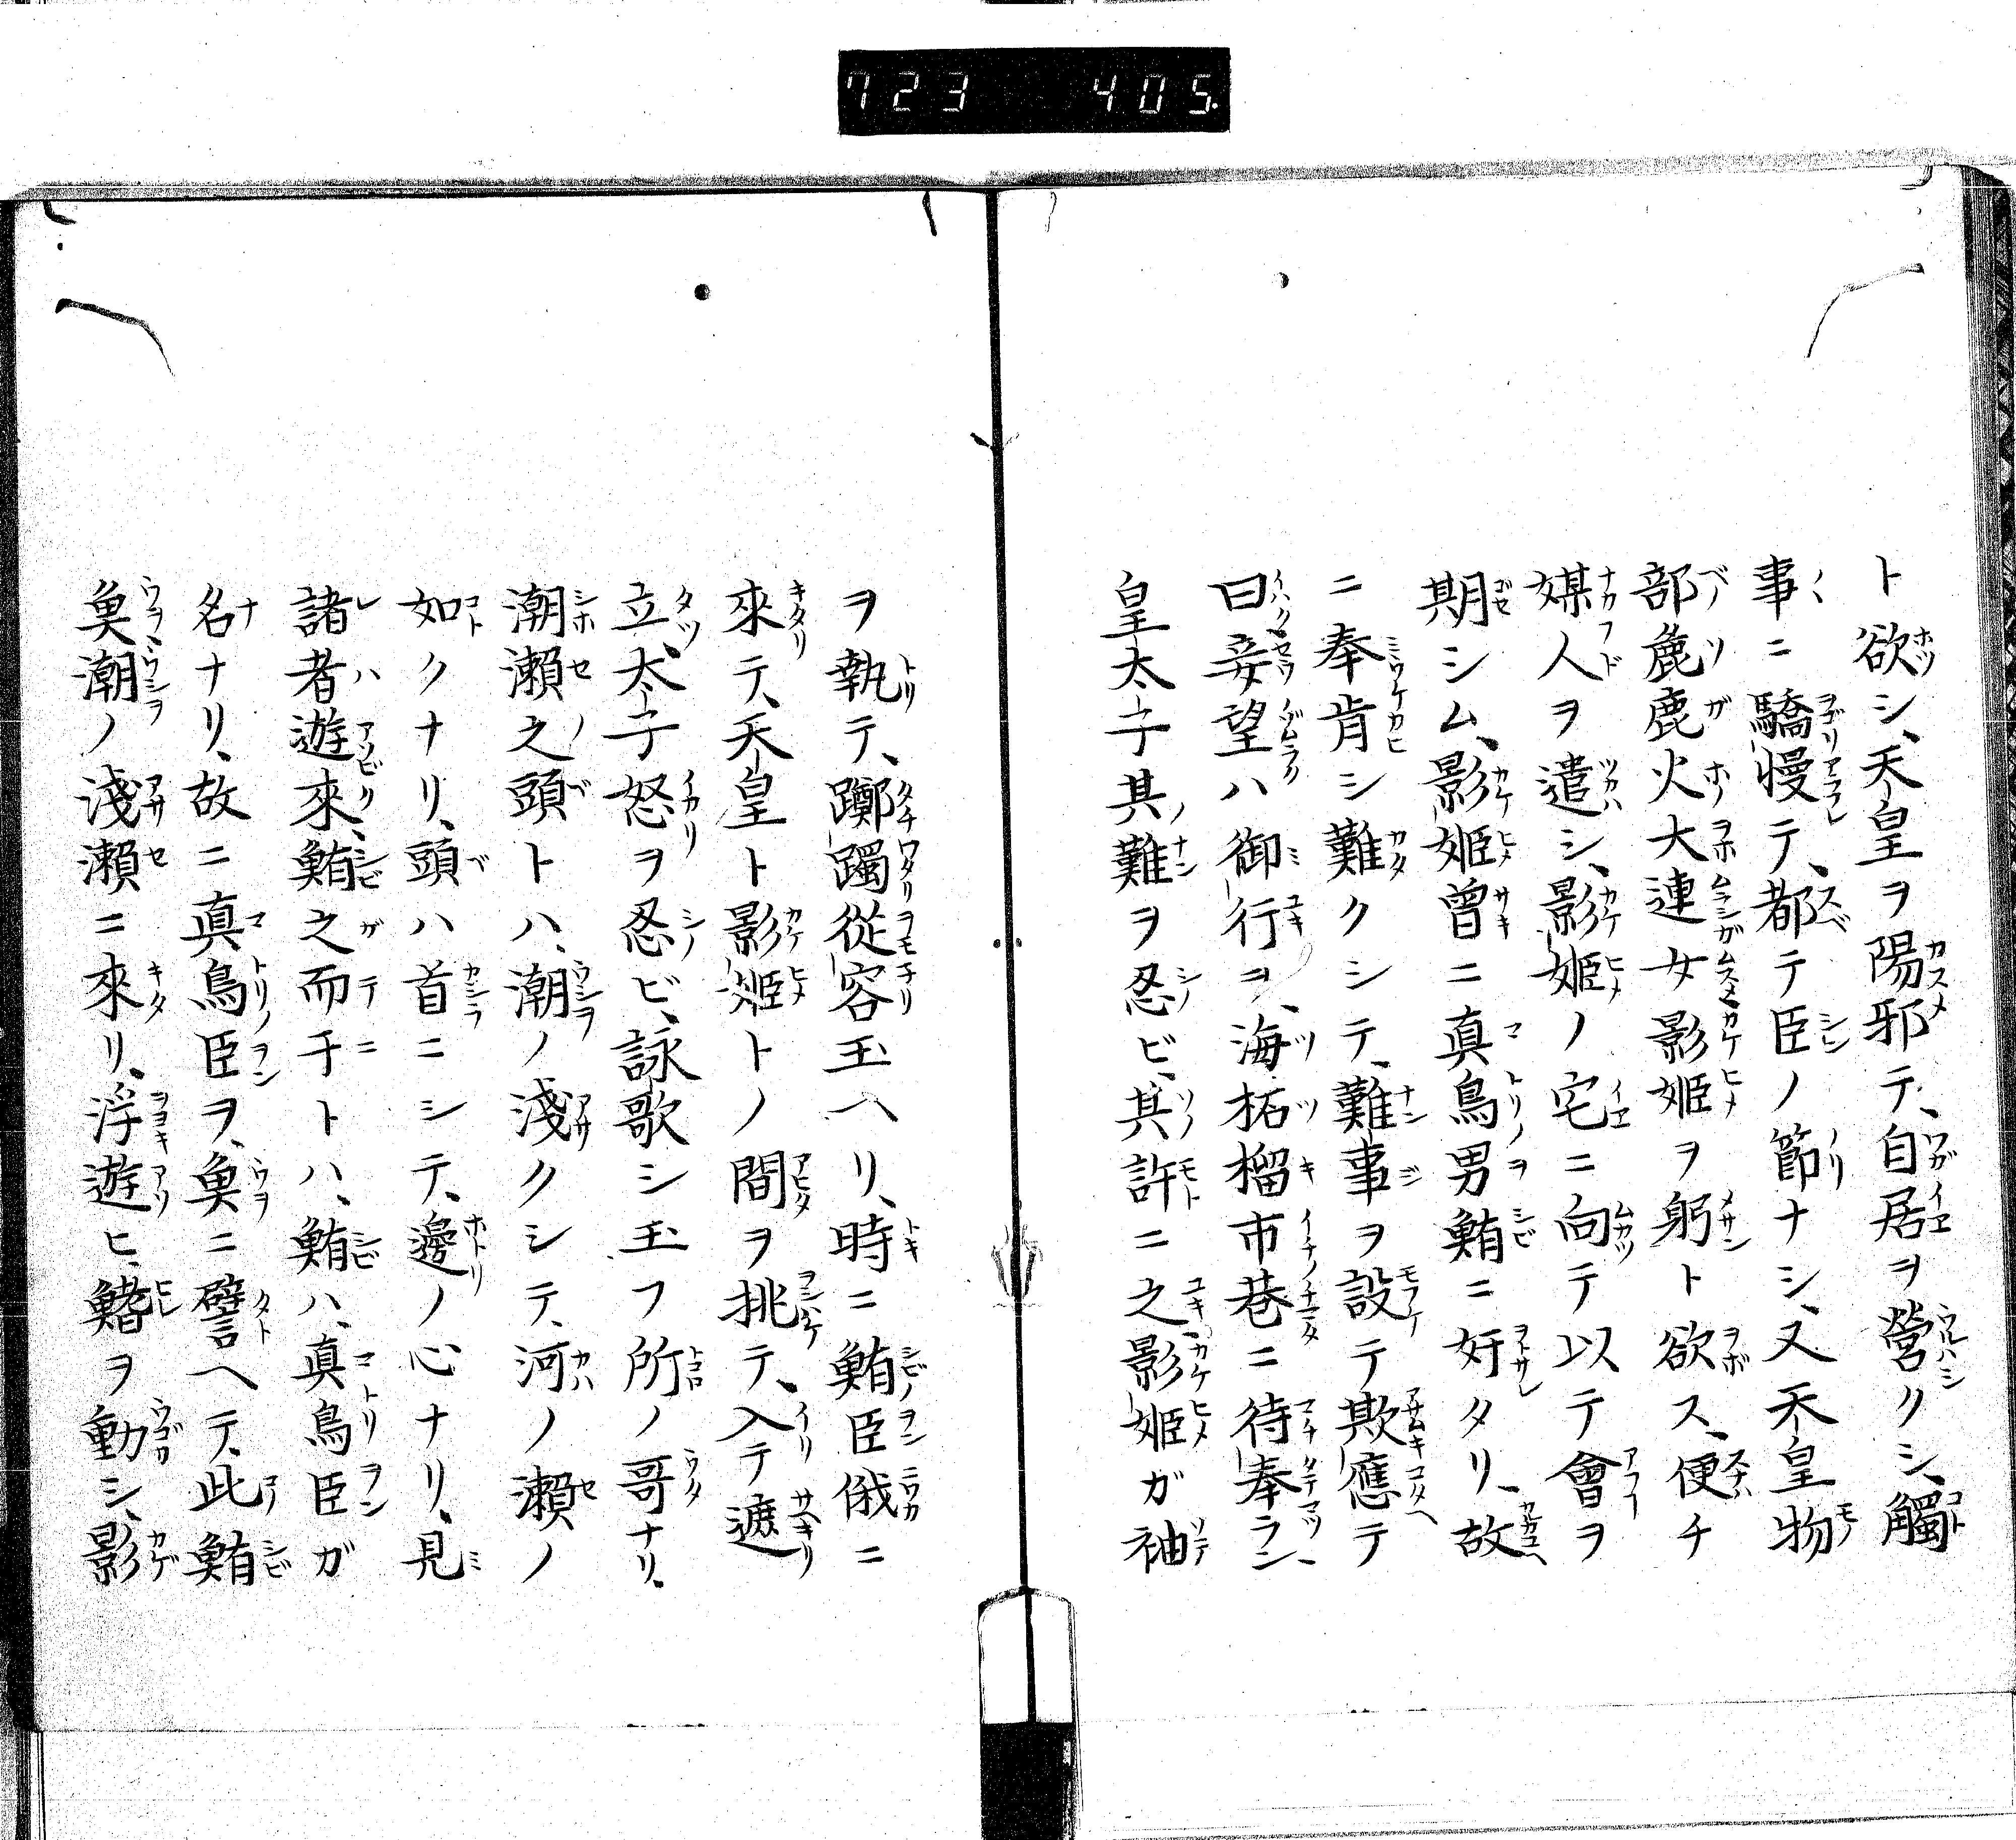 723 405.
ト欲シ、天皇ヲ陽邪テ、自居ヲ營クシ、觸
事ニ驕慢テ、都テ臣ノ節ナシ、又天皇物
部麁鹿火大連女影姫ヲ躬ト欲ス、便チ
媒人ヲ遣シ、影姫ノ宅ニ向テ以テ會ヲ
期シム、影姫曾ニ真鳥男鮪ニ奸タリ、故
ニ奉肯シ難クシテ、難事ヲ設テ欺應テ
曰妾望ハ御行ヲ、海柘榴市巷ニ待奉ラン
皇太子其難ヲ忍ビ、其許ニ之影姫ガ袖
ヲ執テ、躑躅從容玉ヘリ、時ニ鮪臣俄ニ
來テ、天皇ト影姫トノ間ヲ挑テ、入テ遮
立、太子怒ヲ忍ビ、詠歌シ玉フ所ノ哥ナリ、
潮瀬之頭トハ、潮ノ淺クシテ、河ノ瀬ノ
如クナリ、頭ハ首ニシテ、邊ノ心ナリ、見
諸者遊來、鮪之而于トハ、鮪ハ、真鳥臣ガ
名ナリ、故ニ真鳥臣ヲ、魚ニ譬ヘテ、此鮪
魚潮ノ淺瀬ニ來リ、浮遊ヒ、鰭ヲ動シ、影